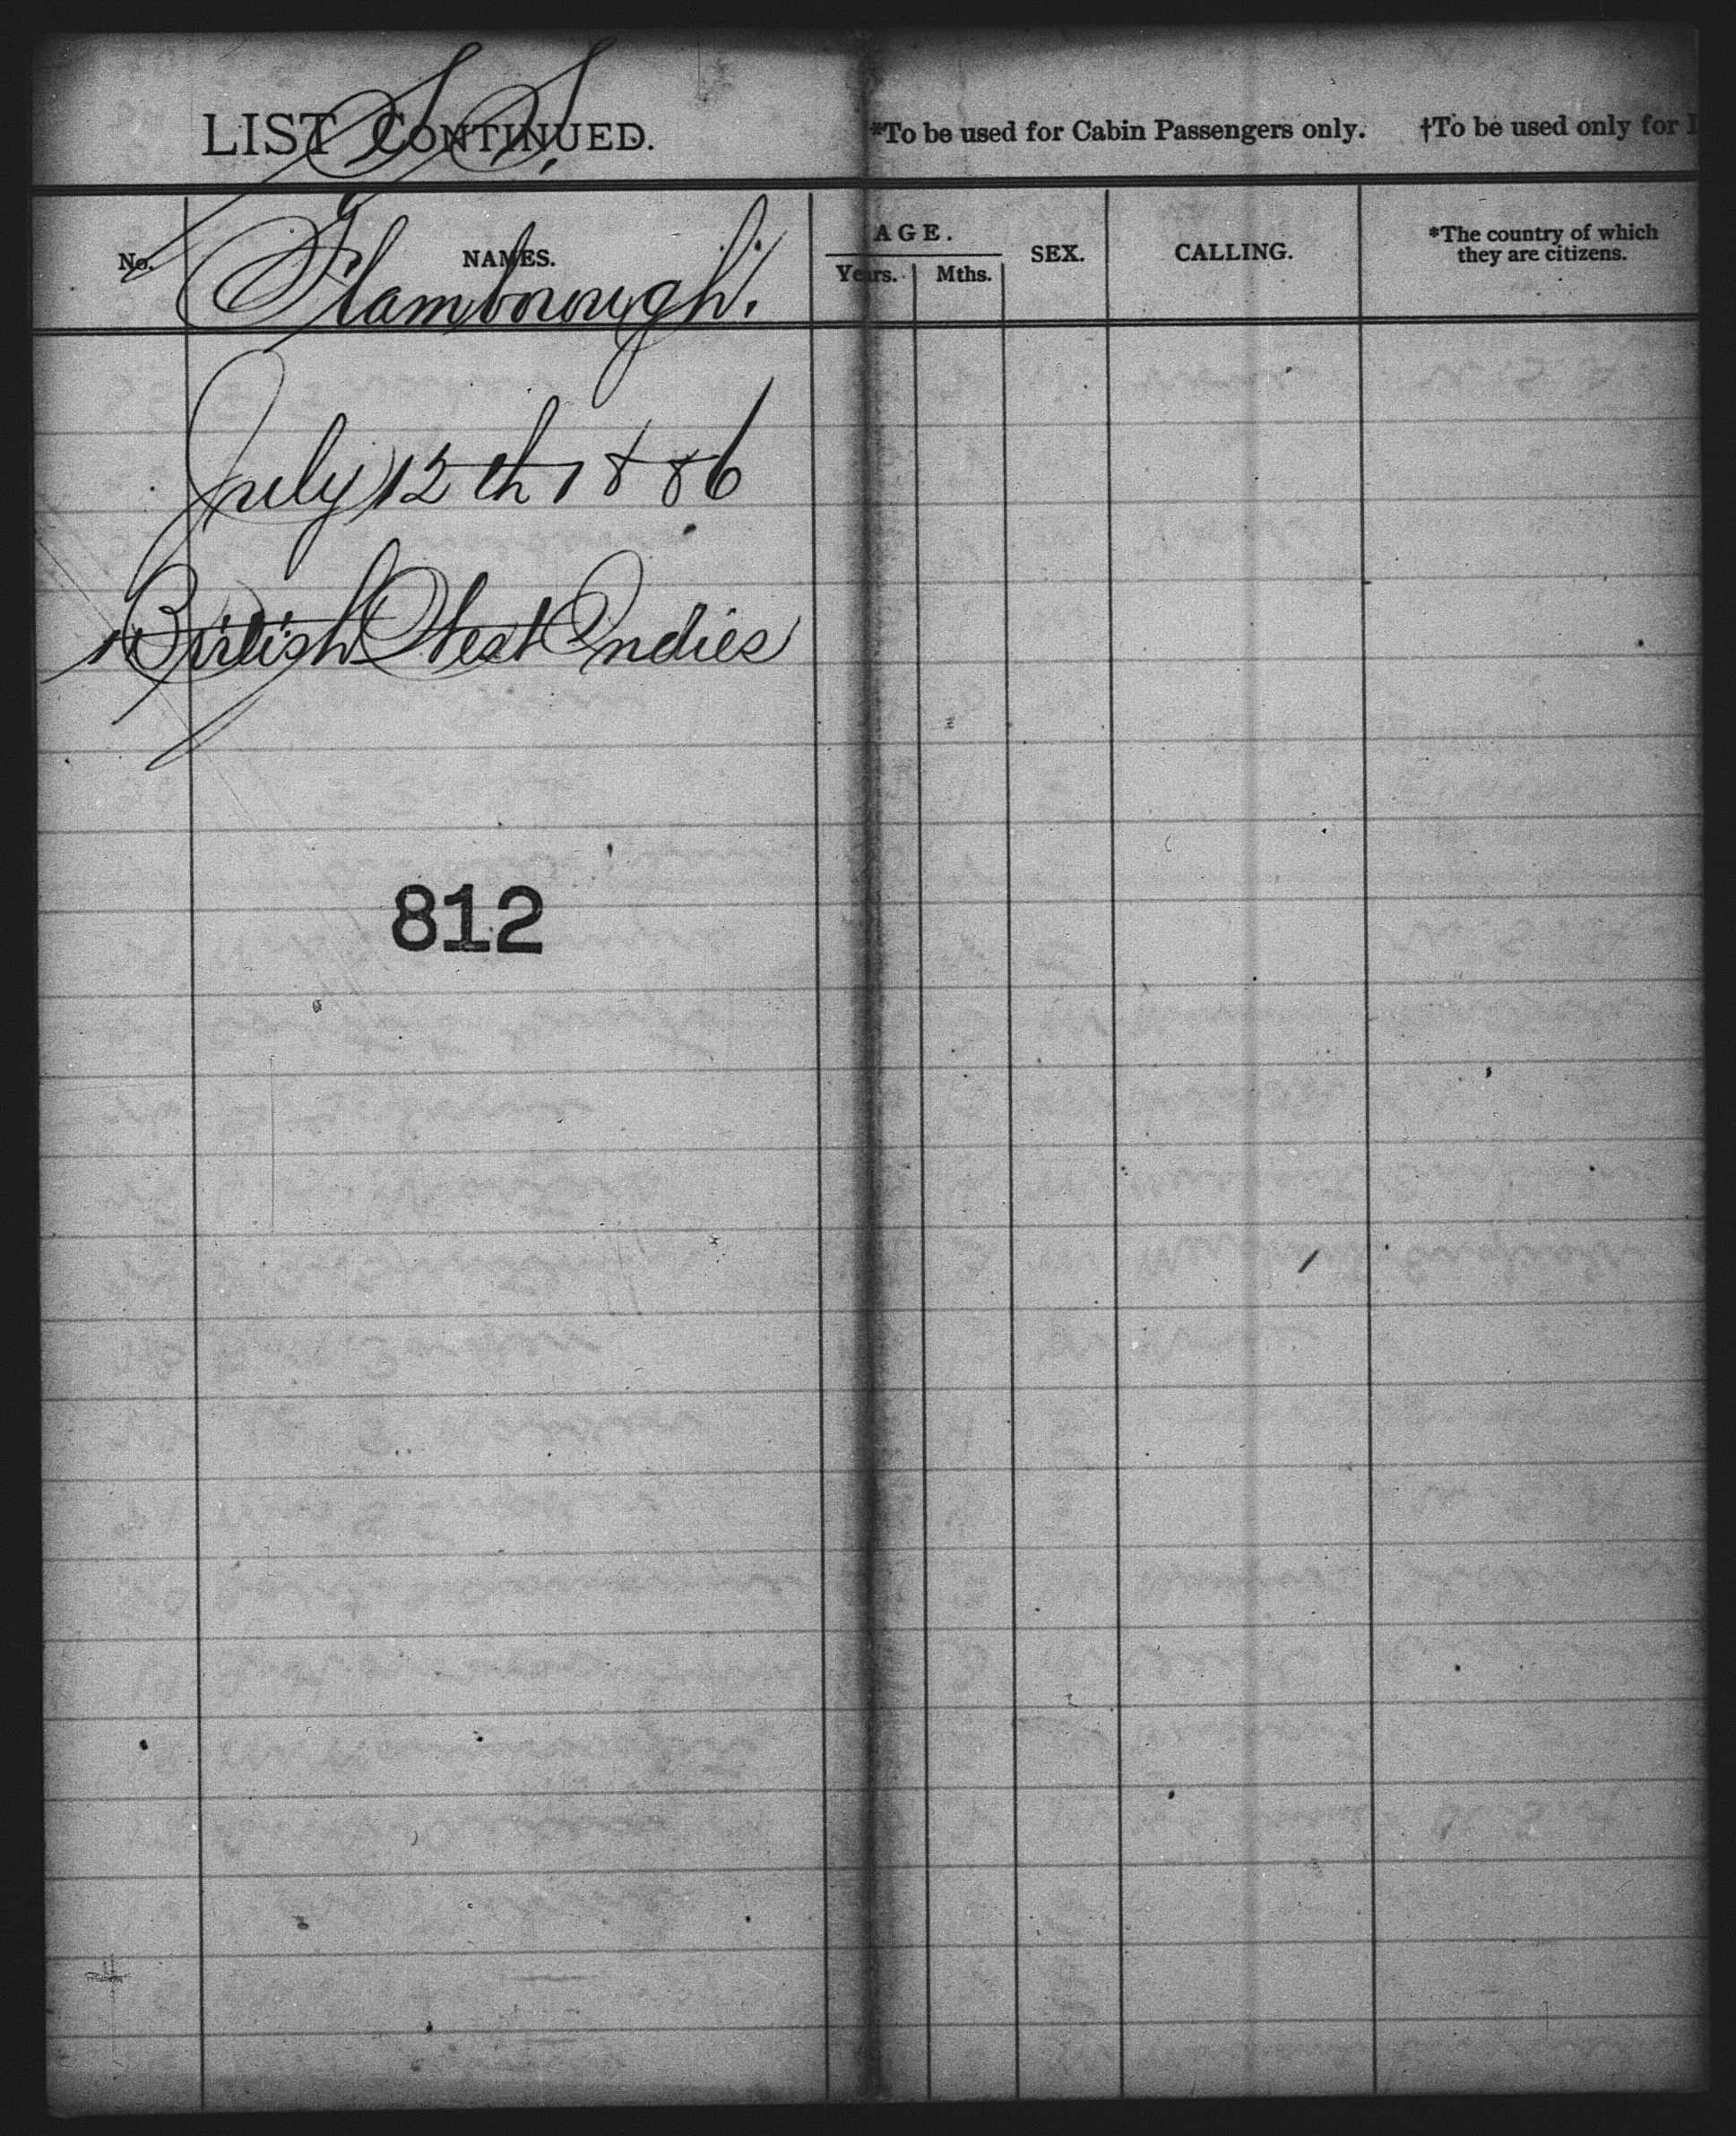 S. S.
LIST CONTINUED.
*To be used for Cabin Passengers only. †To be used only for
No. NAMES. AGE. Years. Mths. SEX. CALLING. *The country of which they are citizens.
Flamborough.
July 12th 1886
British West Indies
812